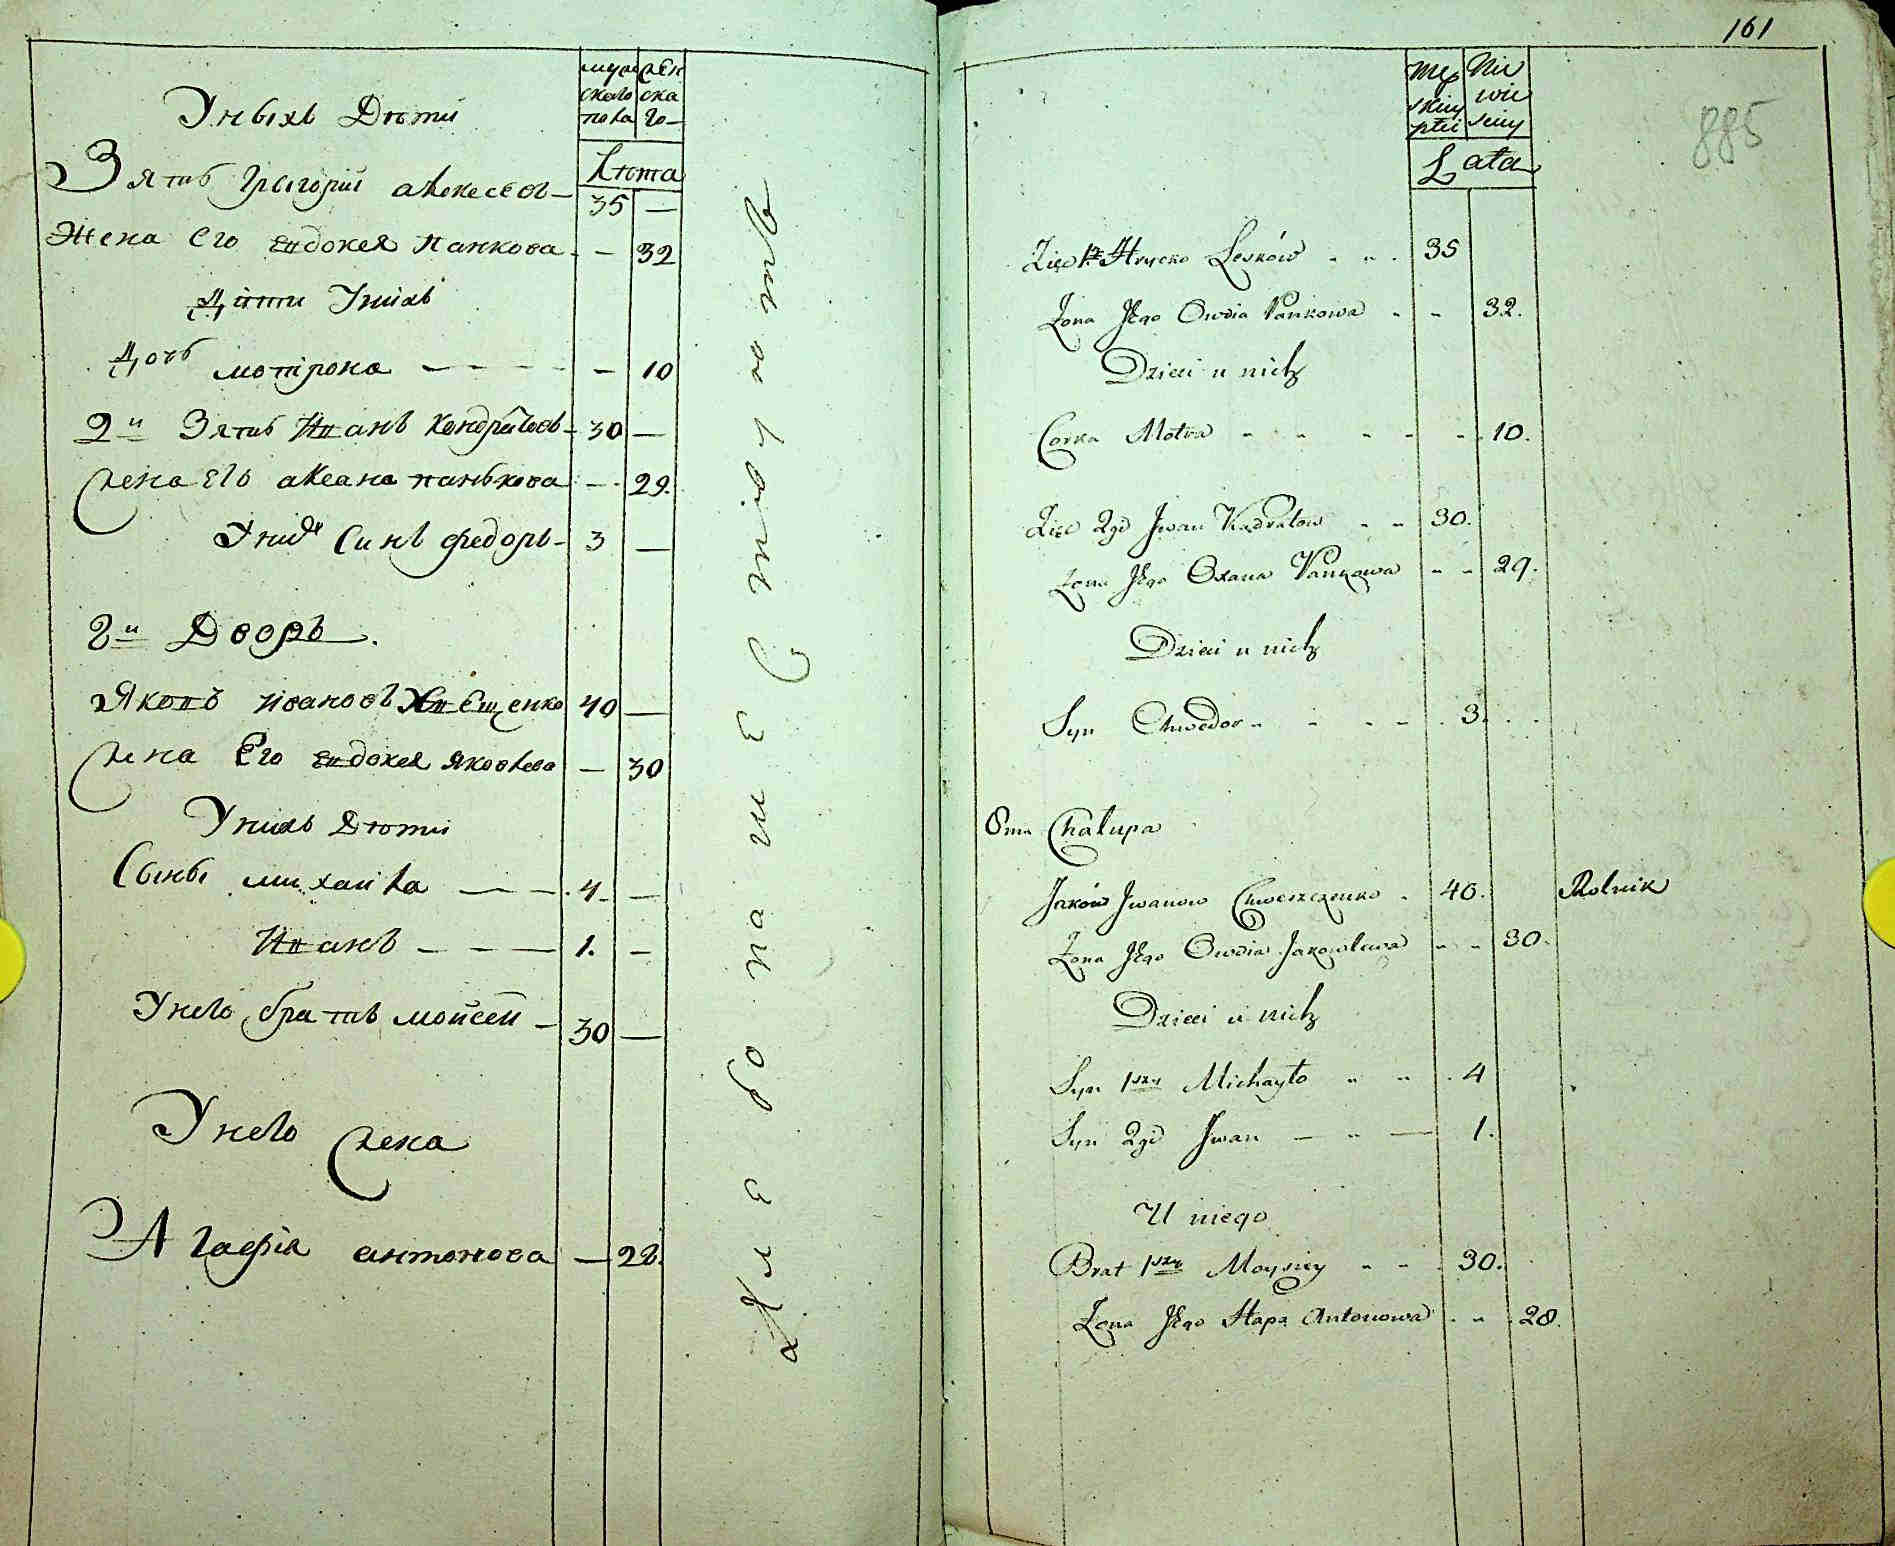 мужска пола
женска го
Лѣта
У ныхъ Дѣти
Зять Грыгорій алексеевъ — 35 —
Жена Его Евдокея панкова — — 32
Дѣти У нихъ
Дочь мотрона — — — — 10
2й Зять Иванъ Кондратовъ — 30 —
жена Его аксана панькова — 29.
У них Синъ Федоръ — 3 —
8й Дворъ.
Яковъ ивановъ Хвещенко 40 —
жена Его Евдокея яковлева — 30
У нихъ Дѣти
Сыны михайла — — 4 —
Иванъ — — — 1. —
У него братъ мойсей — 30 —
У него жена
Агафія антонова — 28.
161
885
Męskiey płci
Niewieściey
Lata
Zięć 1szy Hrycko Lesków 35
Żona Jego Owdia Pankowa 32.
Dzieci u nich
Corka Motra 10.
Zięć 2gi Jwan Kadratow 30.
Żona Jego Oxana Pankowa 29.
Dzieci u nich
Syn Chwedor 3.
8ma Chałupa
Jaków Jwanow Chweszczenko 40. Rolnik
Żona Jego Owdia Jakowlewa 30.
Dzieci u nich
Syn 1szy Michayło 4
Syn 2gi Jwan — — 1.
U niego
Brat 1szy Moysiey 30.
Żona Jego Hapa Antonowa 28.